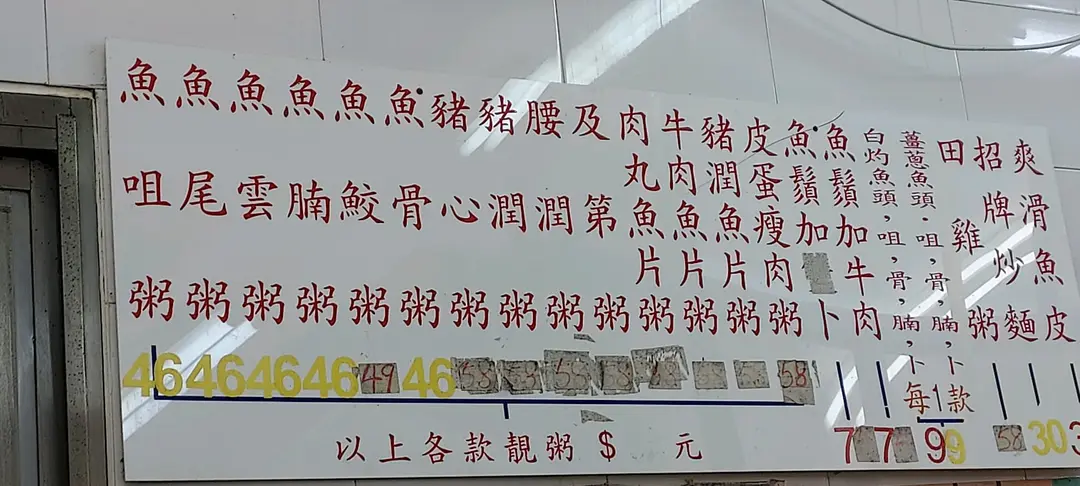 魚咀粥
魚尾粥
魚雲粥
魚腩粥
魚鮫粥
魚骨粥
豬心粥
豬潤粥
腰潤粥
及第粥
肉丸魚片粥
牛肉魚片粥
豬潤魚片粥
皮蛋瘦肉粥
魚鬚加卜
魚鬚加牛肉
白灼魚頭，咀，骨，腩，卜
薑蔥魚頭·咀，骨，腩，卜
每1款
田雞粥
招牌炒麵
爽滑魚皮
46 46 46 46 49 46 58 58
7 7 99 58 30
以上各款靚粥 $ 元